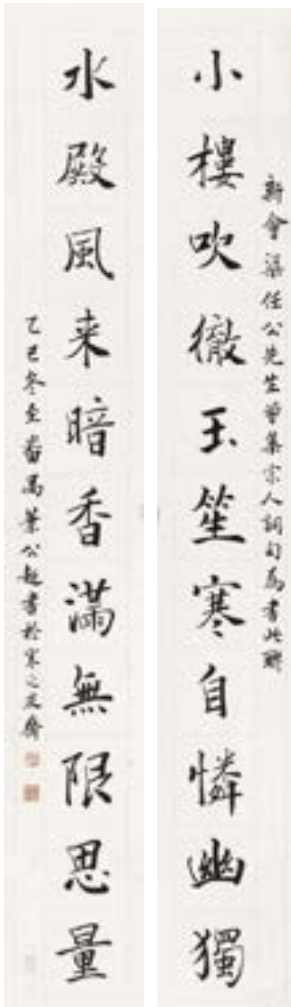 新會梁任公先生曾集宋人詞句為書此聯
小樓吹徹玉笙寒自憐幽獨
水殿風来暗香滿無限思量
乙巳冬至番禺葉公超書於寒之友齋